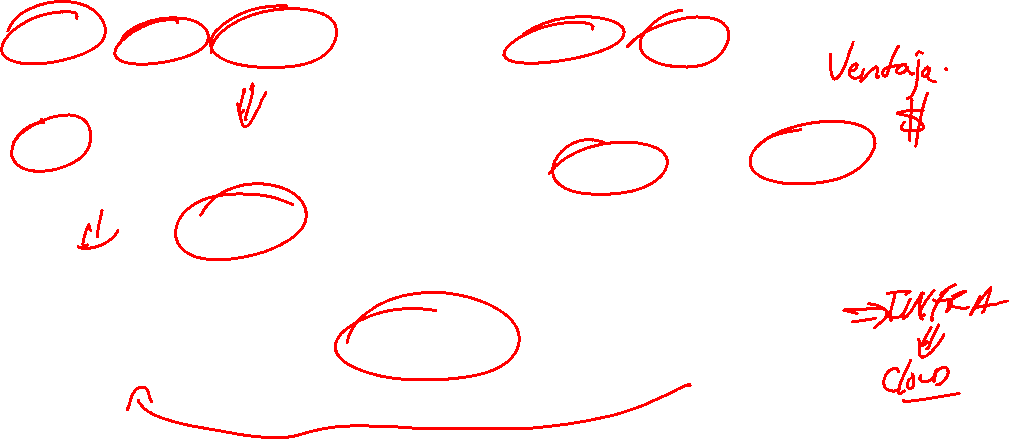 Ventaja.
$
⇒ INFRA
⇓
Cloud